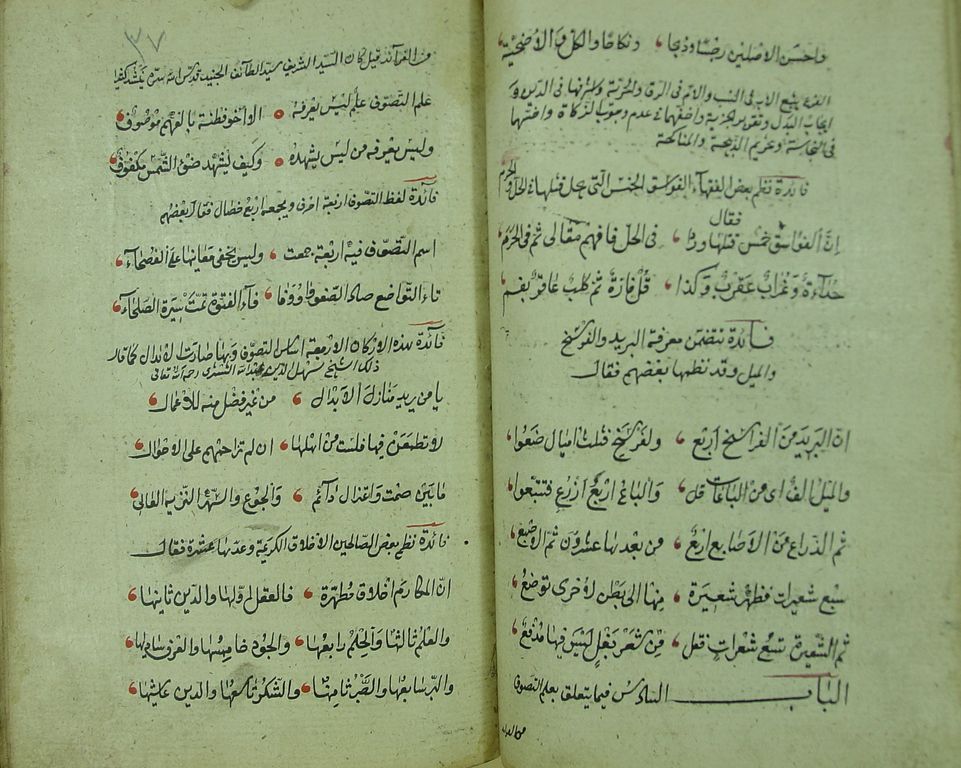 واحسن الاصلين رجسا وذبحا ، ونكاحا والاكل والاضحية
الفرع يتبع الاب فى النسب والام فى الرق والحرية واشرفها فى الدين و
ايجاب البدل وتقرير الجزية واخفهما فى عدم وجوب الزكاة واخسهما
فى النجاسة وتحريم الذبيحة والمناكحة
فائدة نظم بعض الفقهاء الفواسق الخمس التى حل قتلها فى الحل والحرم
فقال
ان الفواسق خمس قتلها وردا ، فى الحل فافهم مقالى ثم فى الحرم
حداءة وغراب عقرب وكذا ، قل فارة ثم كلب عاقر بفم
فائدة تتضمن معرفة البريد والفرسخ
والميل وقد نظمها بعضهم فقال
ان البريد من الفراسخ اربع ، ولفرسخ فثلث اميال ضعوا
والميل الف اى من الباعات قل ، والباع اربع اذرع فتتبعوا
ثم الذراع من الاصابع اربع ، من بعدها عشرون ثم الاصبع
سبع شعيرات فظهر شعيرة ، منها الى بطن لاخرى توضع
ثم الشعيرة تسع شعرات فقل ، من شعر بغل ليس فيها مدفع
الباب السادس فيما يتعلق بعلم التصوف
من الفوائد
٣٧
من الفوائد قيل كان السيد الشريف سيد الطائفة الجنيد قدس الله سره ينشد كثيرا
علم التصوف علم ليس يعرفه ، الا اخو فطنة بالفهم موصوف
وليس يعرفه من ليس يشهده ، وكيف يشهد ضوء الشمس مكفوف
فائدة لفظ التصوف اربعة احرف ويجمعه اربع خصال فقال بعضهم
اسم التصوف فيه اربعة جمعت ، وليس يخفى معانيها على الفصحاء
تاء التواضع صاد الصفو واو وفا ، فاء الفتوة تمت سيرة الصلحاء
فائدة هذه الاركان الاربعة اساس التصوف وبها صارت الابدال كما قال
ذلك الشيخ سهل الدين عبد الله التسترى رحمه الله تعالى
يا من يريد منازل الابدال ، من غير فضل منه للاعمال
لا تطمعن فيها فلست من اهلها ، ان لم تزاحمهم على الاحوال
ما بين صمت واعتزال دائم ، والجوع والسهر النزيه الغالى
فائدة نظم بعض الصالحين الاخلاق الكريمة وعدها عشرة فقال
ان المكارم اخلاق مطهرة ، فالعقل اولها والدين ثانيها
والعلم ثالثها والحلم رابعها ، والجود خامسها والعرف ساديها
والبر سابعها والصبر ثامنها ، والشكر تاسعها والدين عاشيها